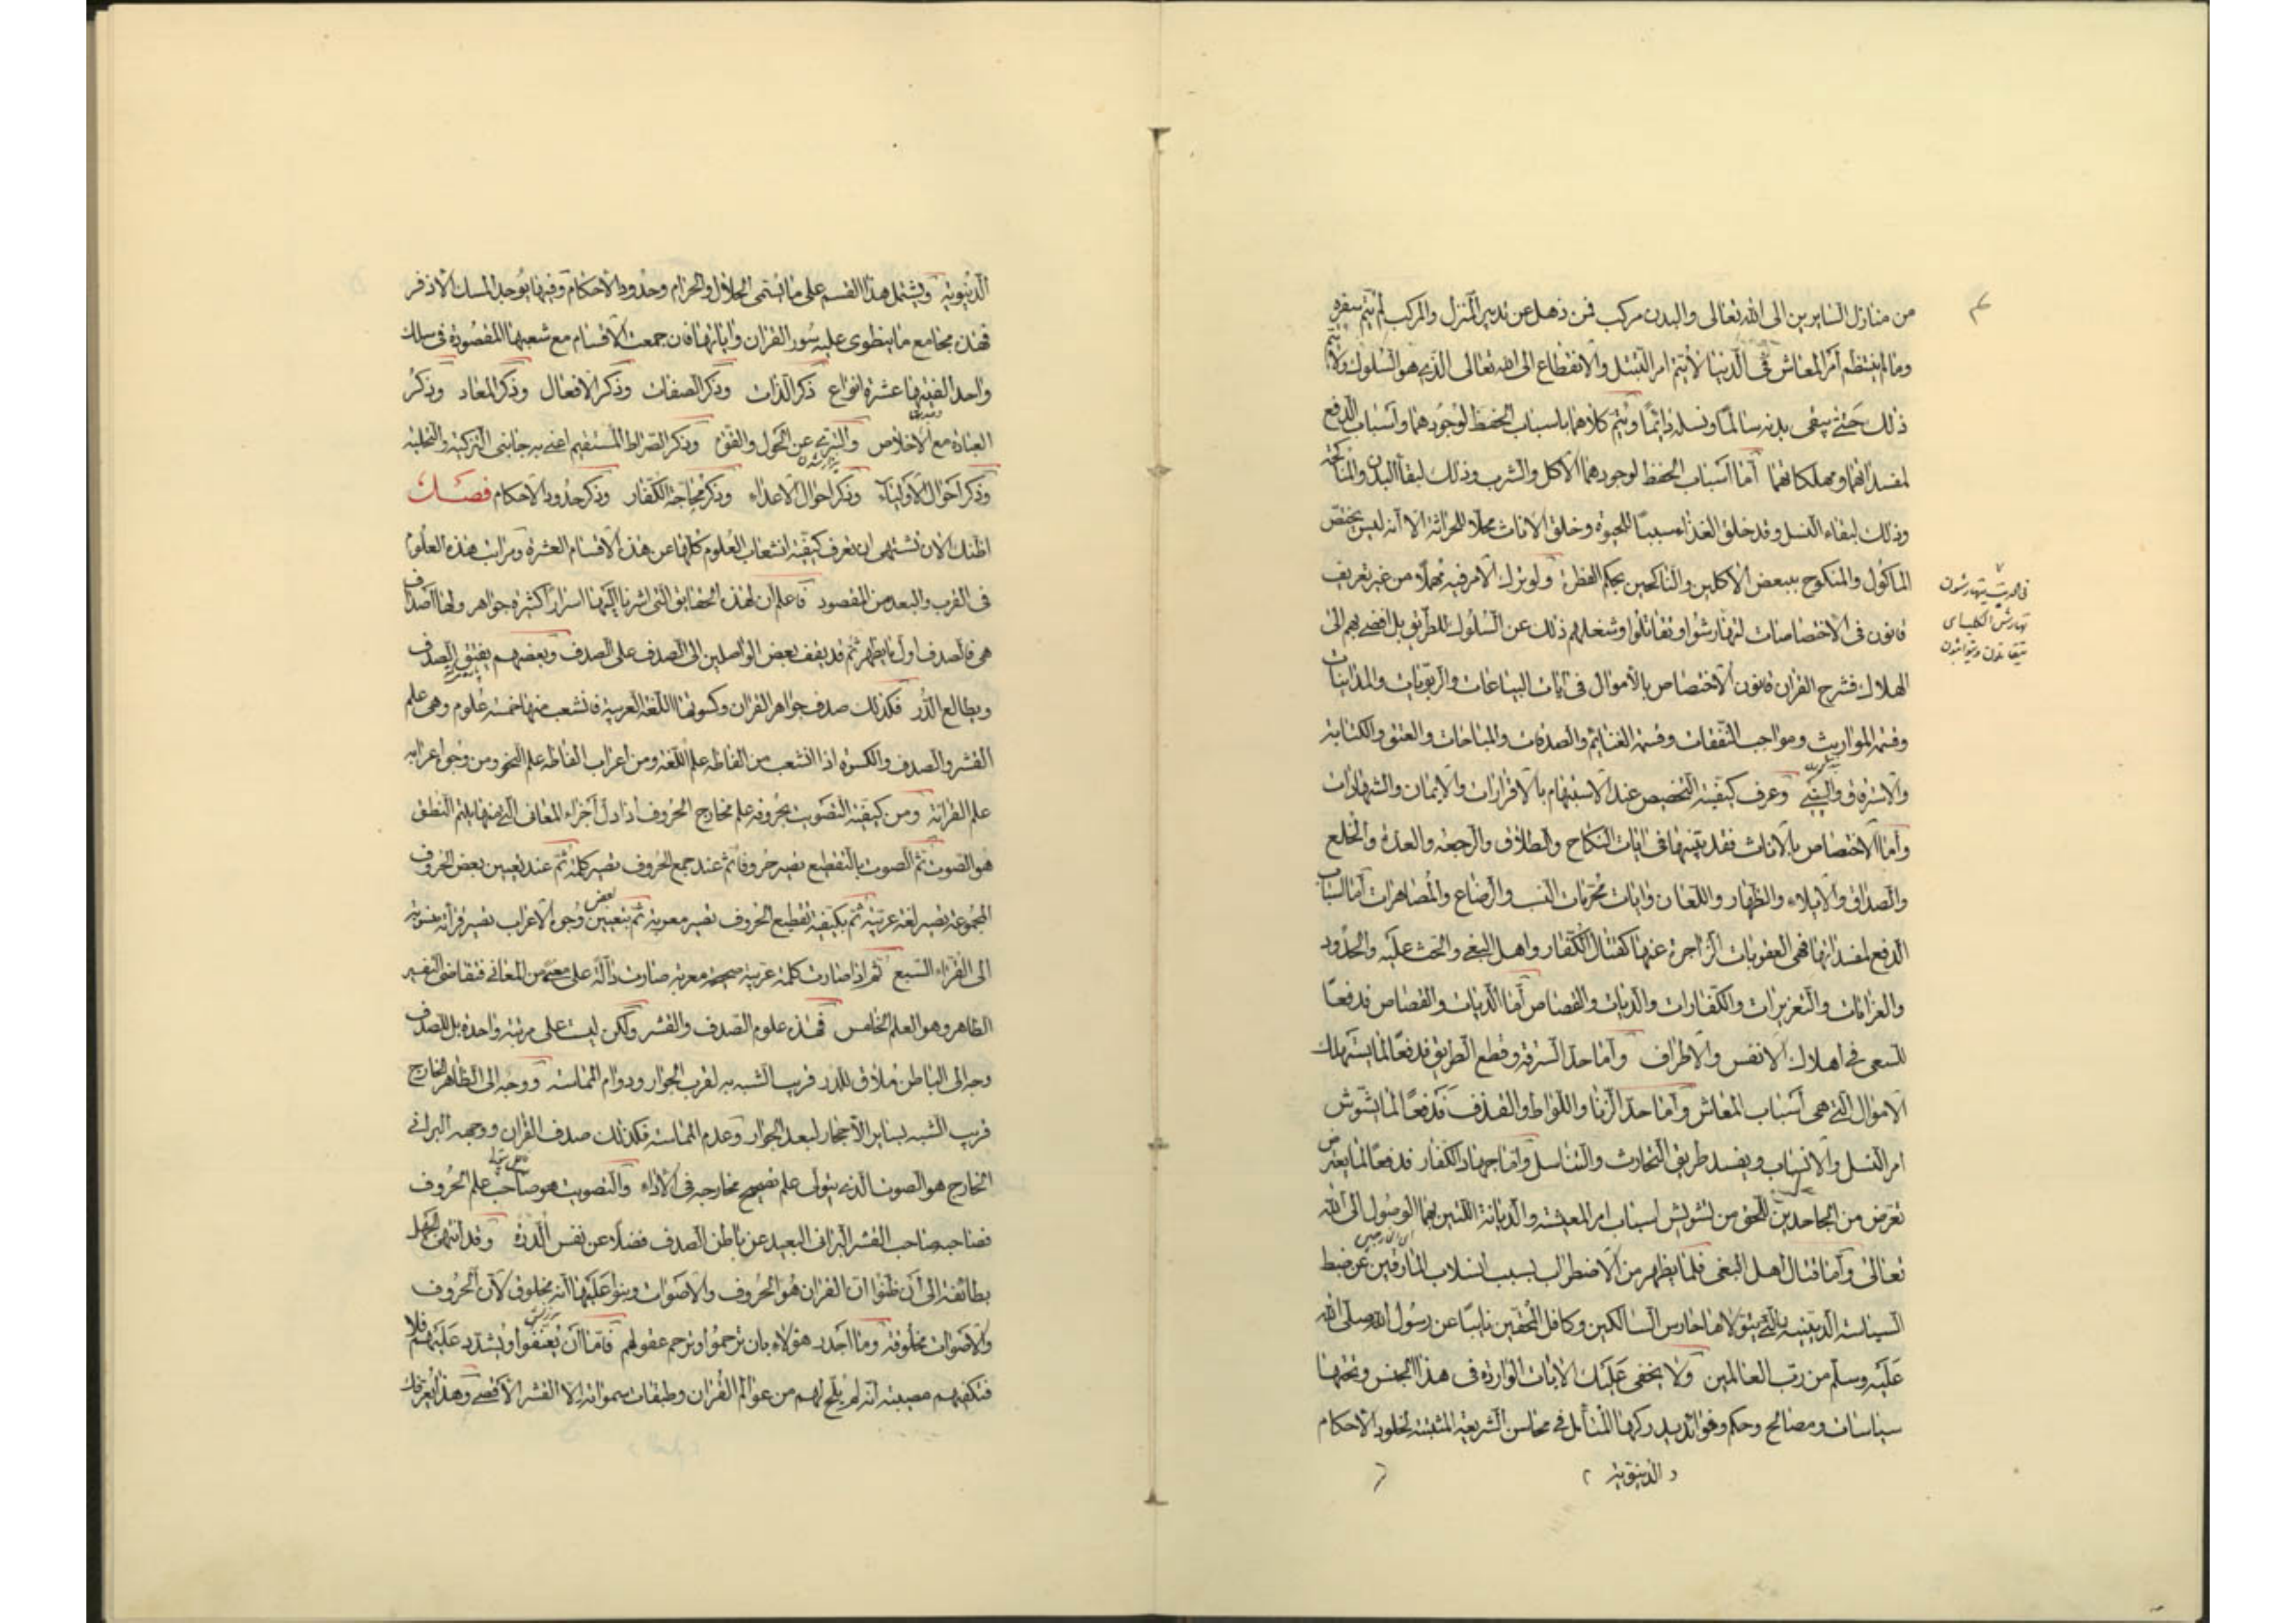 من منازل السايرين الى الله تعالى والبدن مركب فمن ذهل عن تدبير المنزل والمركب لم يتم سفره
وما لم ينتظم امر المعاش في الدنيا لا يتم امر التبتل والانقطاع الى الله تعالى الذي هو السلوك ولا يتم
ذلك حتى يبقى بدنه سالما ونسله دائما ويتم كلاهما باسباب الحفظ لوجودهما واسباب الدفع
لمفسداتهما ومهلكاتهما اما اسباب الحفظ لوجودهما الاكل والشرب وذلك لبقاء البدن والمناكحة
وذلك لبقاء النسل وقد خلق الغذاء سببا للحيوة وخلق الاناث محلا للحراثة الا انه ليس يختص
الماكول والمنكوح ببعض الاكلين والناكحين بحكم الفطرة ولو ترك الامر فيه مهملا من غير تعريف
قانون في الاختصاصات لتهارشوا وتقاتلوا وشغلهم ذلك عن السلوك للطريق بل افضى بهم الى
الهلاك فشرح القران قانون الاختصاص بالاموال في ايات البياعات والربويات والمداينات
وقسم المواريث ومواجب النفقات وقسمة الغنايم والصدقات والمناحات والعتق والكتابة
والاسترقاق والسبي وعرف كيفية التخصيص عند الاستبهام بالاقرارات والايمان والشهادات
واما الاختصاص بالاناث فقد بينها في ايات النكاح والطلاق والرجعة والعدة والخلع
والصداق والايلاء والظهار واللعان وايات محرمات النسب والرضاع والمصاهرات اما اسباب
الدفع لمفسداتها فهي العقوبات الزاجرة عنها كقتال الكفار واهل البغي والحث عليه والحدود
والغرامات والتعزيرات والكفارات والديات والقصاص اما الديات والقصاص فدفعا
للسعي في اهلاك الانفس والاطراف واما حد السرقة وقطع الطريق فدفعا لما يستهلك
الاموال التي هي اسباب المعاش واما حد الزنا واللواط والقذف فدفعا لما يشوش
امر النسل والانساب ويفسد طريق التحارث والتناسل واما جهاد الكفار فدفعا لما يعترض
تعرض من الجاحدين للحق من تشويش اسباب امر المعيشة والديانة اللتين بهما الوصول الى الله
تعالى واما قتال اهل البغي فلما يظهر من الاضطراب بسبب انسلاب المارقين عن ضبط
السياسة الدينية التي يتولاها حارس السالكين وكافل المحقين نايبا عن رسول الله صلى الله
عليه وسلم من رب العالمين ولا يخفى عليك الايات الواردة في هذا الجنس وتحتها
سياسات ومصالح وحكم وفوائد يدركها المتأمل في محاسن الشريعة المثبتة لحدود الاحكام
الدنيوية
الدنيوية ويشتمل هذا القسم على ما يسمى الحلال والحرام وحدود الاحكام وفيها يوجد المسك الاذفر
فهذه مجامع ما ينطوي عليه سور القران واياتها فان جمعت الاقسام مع شعبها المقصودة في سلك
واحد الفيتها عشرة انواع ذكر الذات وذكر الصفات وذكر الافعال وذكر المعاد وذكر
العبادة مع الاخلاص والتبرئ عن الحول والقوة وذكر الصراط المستقيم اعني به جانبي التزكية والتحلية
وذكر احوال الاولياء وذكر احوال الاعداء وذكر محاجة الكفار وذكر حدود الاحكام فصل
اظنك الان تشتهي ان تعرف كيفية انشعاب العلوم كلها عن هذه الاقسام العشرة ومراتب هذه العلوم
في القرب والبعد من المقصود فاعلم ان لهذه الحقايق التي اشرنا اليها اسرارا كثيرة جواهر ولها اصداف
هي فالصدف اول ما يظهر ثم قد يقف بعض الواصلين الى الصدف على الصدف وبعضهم يفتق الصدف
ويطالع الدر فكذلك صدف جواهر القران وكسوتها اللغة العربية فانشعب منها خمسة علوم وهي علم
القشر والصدف والكسوة اذا انشعب من الفاظه علم اللغة ومن اعراب الفاظه علم النحو ومن وجوه اعرابه
علم القراءة ومن كيفية التصويت بحروفه علم مخارج الحروف اذا دل اجزاء المعاني التي منها يلتئم النطق
هو الصوت ثم الصوت بالتقطيع يصير حروفا ثم عند جمع الحروف يصير كلمة ثم عند تعيين بعض الحروف
المجموعة يصير لغة عربية ثم بكيفية تقطيع الحروف يصير معربة ثم بتعيين بعض وجوه الاعراب يصير قراءة منسوبة
الى القراء السبع ثم اذا صارت كلمة عربية صحيحة معربة صارت دالة على معنى من المعاني فتقاضى التفسير
الظاهر وهو العلم الخامس فهذه علوم الصدف والقشر ولكن ليست على مرتبة واحدة بل للصدف
وجه الى الباطن ملاق للدر قريب الشبه به لقرب الجوار ودوام المماسة ووجه الى الظاهر الخارج
قريب الشبه بساير الاحجار لبعد الجوار وعدم المماسة فكذلك صدف القران ووجهه البراني
الخارج هو الصوت الذي يتولى علم تصحيح مخارجه في الاداء والتصويت هو صاحب علم الحروف
فصاحبه صاحب القشر البراني البعيد عن باطن الصدف فضلا عن نفس الدرة وقد انتهى الجهل
بطائفة الى ان ظنوا ان القران هو الحروف والاصوات وبنوا عليها انه مخلوق لان الحروف
والاصوات مخلوقة وما اجدر هؤلاء بان ترحموا وترحم عقولهم فاما ان يعنفوا ويشدد عليهم فلا
فتكفيهم مصيبة انه لم يلح لهم من عوالم القران وطبقات سمواته الا القشر الاقصى وهذا يعرفك